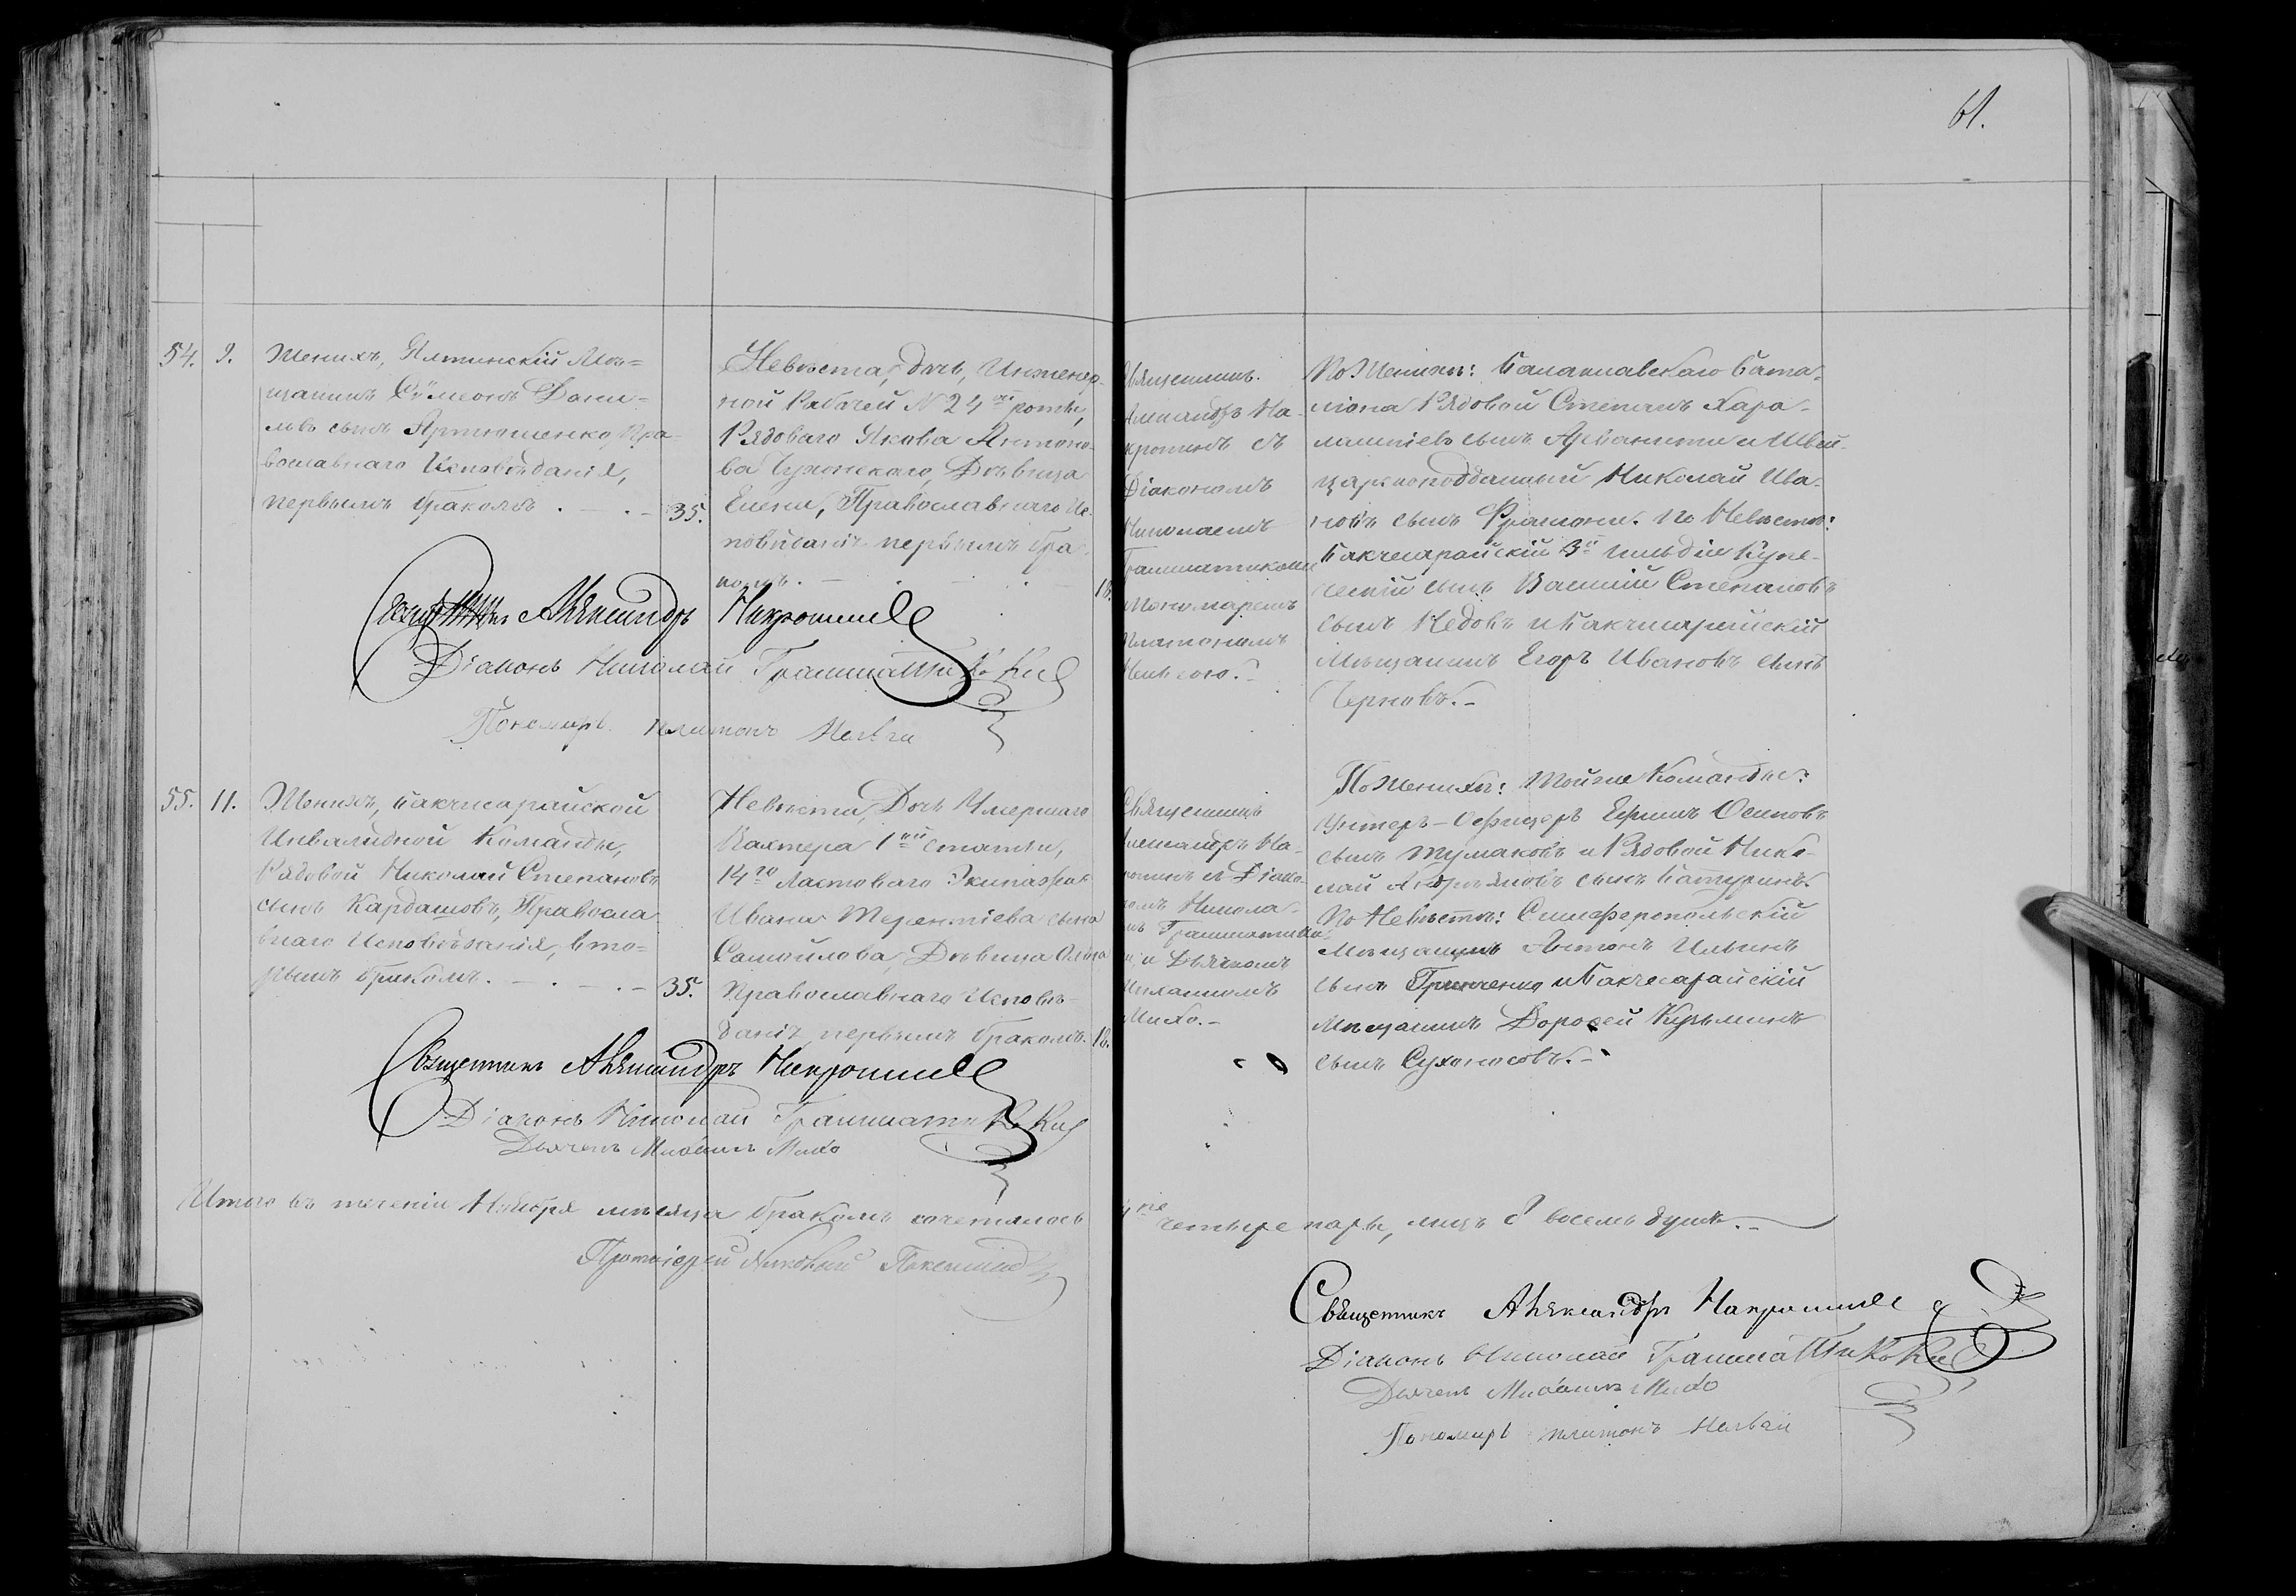 61.
54. 9. Женихъ, Ялтинскій Мѣ=
щанинъ Сѵмеонъ Дани=
ловъ сынъ Артюшенко, Пра=
вославнаго Исповѣданія,
первымъ бракомъ . — . — 35.
Невѣста, дочь, Инженер-
ной Рабочей № 24ой роты,
Рядоваго Якова Антоно-
ва Чухонскаго, Дѣвица
Елена, Православнаго Ис-
повѣданія первымъ бра-
комъ. — . — . — 18.
Священникъ
Александръ На-
кропинъ съ
Діакономъ
Николаемъ
Грамматикоми
Пономаремъ
Платономъ
По Женихѣ: Балаклавскаго Бата-
ліона Рядовой Степанъ Хара-
лампіевъ сынъ Арванити и Швей-
царскоподданный Николай Ива-
новъ сынъ Фрамони. По Невѣстѣ:
Бакчисарайскій 3й гильдіи Купе-
ческій сынъ Василій Степановъ
сынъ Кедовъ и Бакчисарайскій
Мѣщанинъ Егоръ Ивановъ сынъ
Черновъ. —
Александръ
Діаконъ Николай
Пономарь Платонъ
55. 11. Женихъ, Бакчисарайской
Инвалидной Команды,
Рядовой Николай Степановъ
сынъ Кардашовъ, Правосла
внаго Исповѣданія, вто=
рымъ бракомъ. — . — . — 35.
Невѣста, Дочь Умершаго
Вахтера 1ой статьи,
14го Ластоваго Экипажа
Ивана Терентіева сына
Самойлова, Дѣвица Ольга
Православнаго Исповѣ-
данія, первымъ бракомъ. 18.
Священникъ
Александръ На-
кропинъ съ Діако-
номъ Никола-
емъ Грамматико
и Дьячкомъ
Михаиломъ
Михо. —
По Женихѣ: Тойже Команды:
Унтеръ-Офицеръ Ефимъ Осиповъ
сынъ Тумаковъ и Рядовой Нико-
лай Андрѣяновъ сынъ Батуринъ.
По Невѣстѣ: Симферопольскій
Мѣщанинъ Антонъ Ильинъ
сынъ Гринченко и Бакчисарайскій
Мѣщанинъ Дорофей Кузьминъ
сынъ Сухоносовъ. —
Священникъ Александръ
Діаконъ Николай
Дьячекъ Михаилъ Михо
Итого въ теченіи Ноября мѣсяца бракомъ сочеталось
4ре четыре пары, лицъ 8 восемь душъ. —
Протоіерей
Священникъ Александръ
Діаконъ Николай
Дьячекъ Михаилъ Михо
Пономарь Платонъ